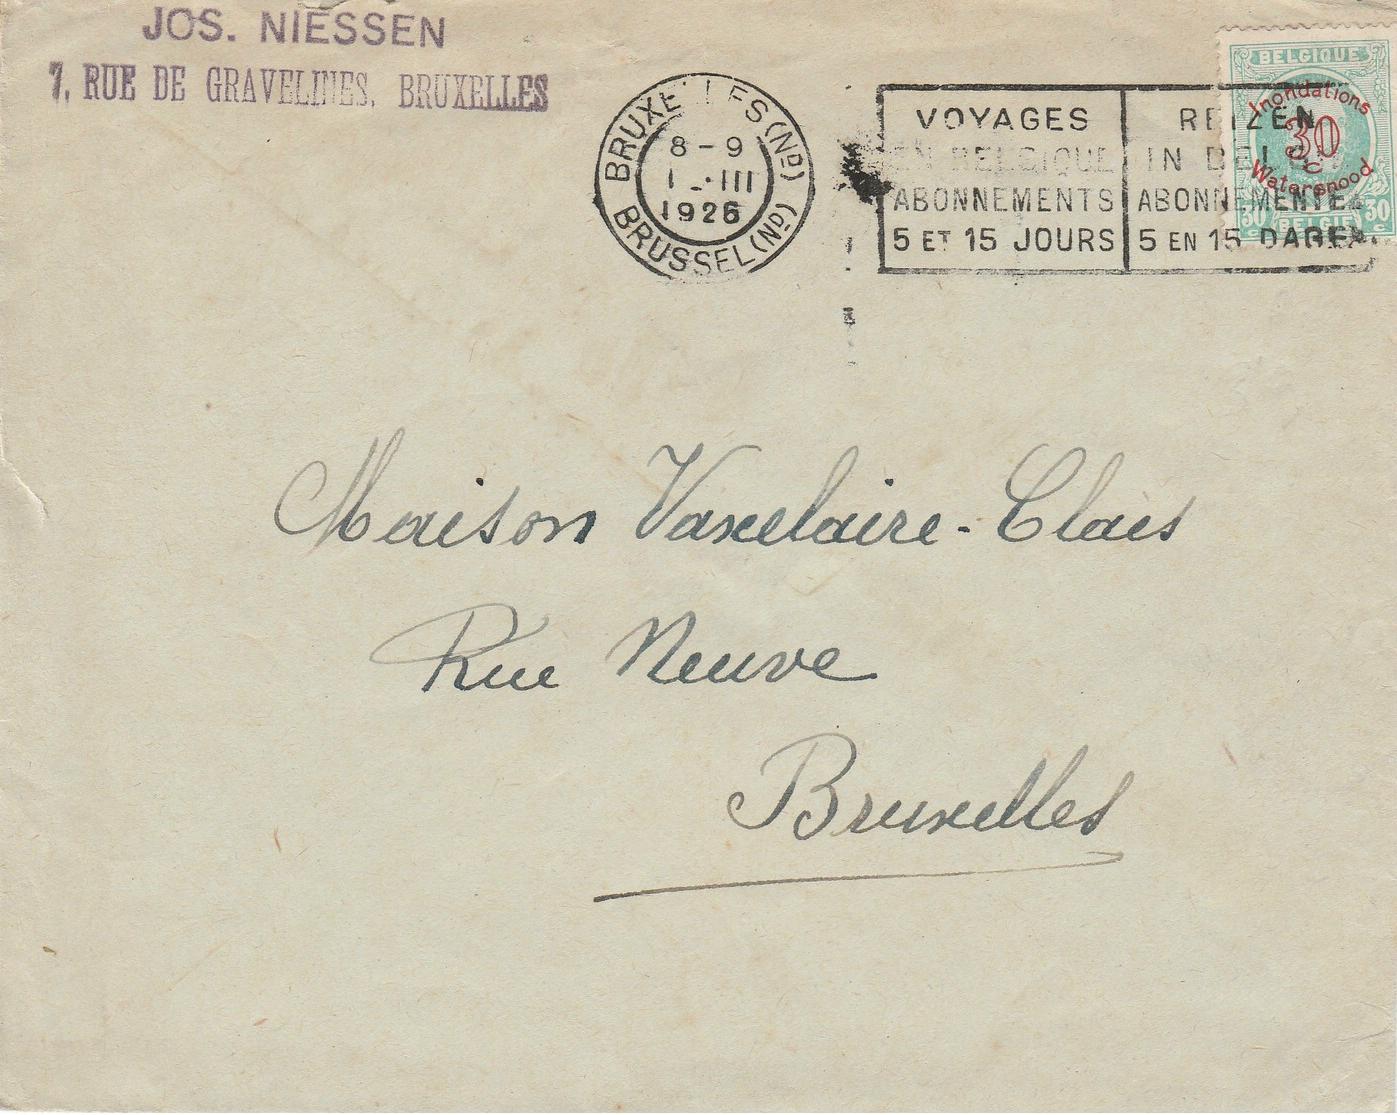 JOS. NIESSEN
7, RUE DE GRAVELINES, BRUXELLES
BRUXELLES (ND)
8 - 9
1 - III
1926
BRUSSEL (ND)
VOYAGES
EN BELGIQUE
ABONNEMENTS
5 ET 15 JOURS
REIZEN
IN BELGIE
ABONNEMENTEN
5 EN 15 DAGEN
BELGIQUE
Inondations
30
c
Watersnood
30 30
BELGIE
Maison Vaxelaire-Claes
Rue Neuve
Bruxelles